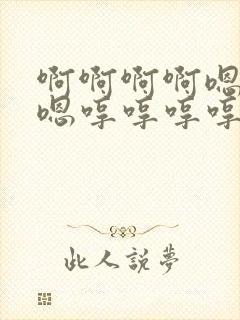 啊啊啊啊嗯
嗯哼哼哼哼
此人说梦